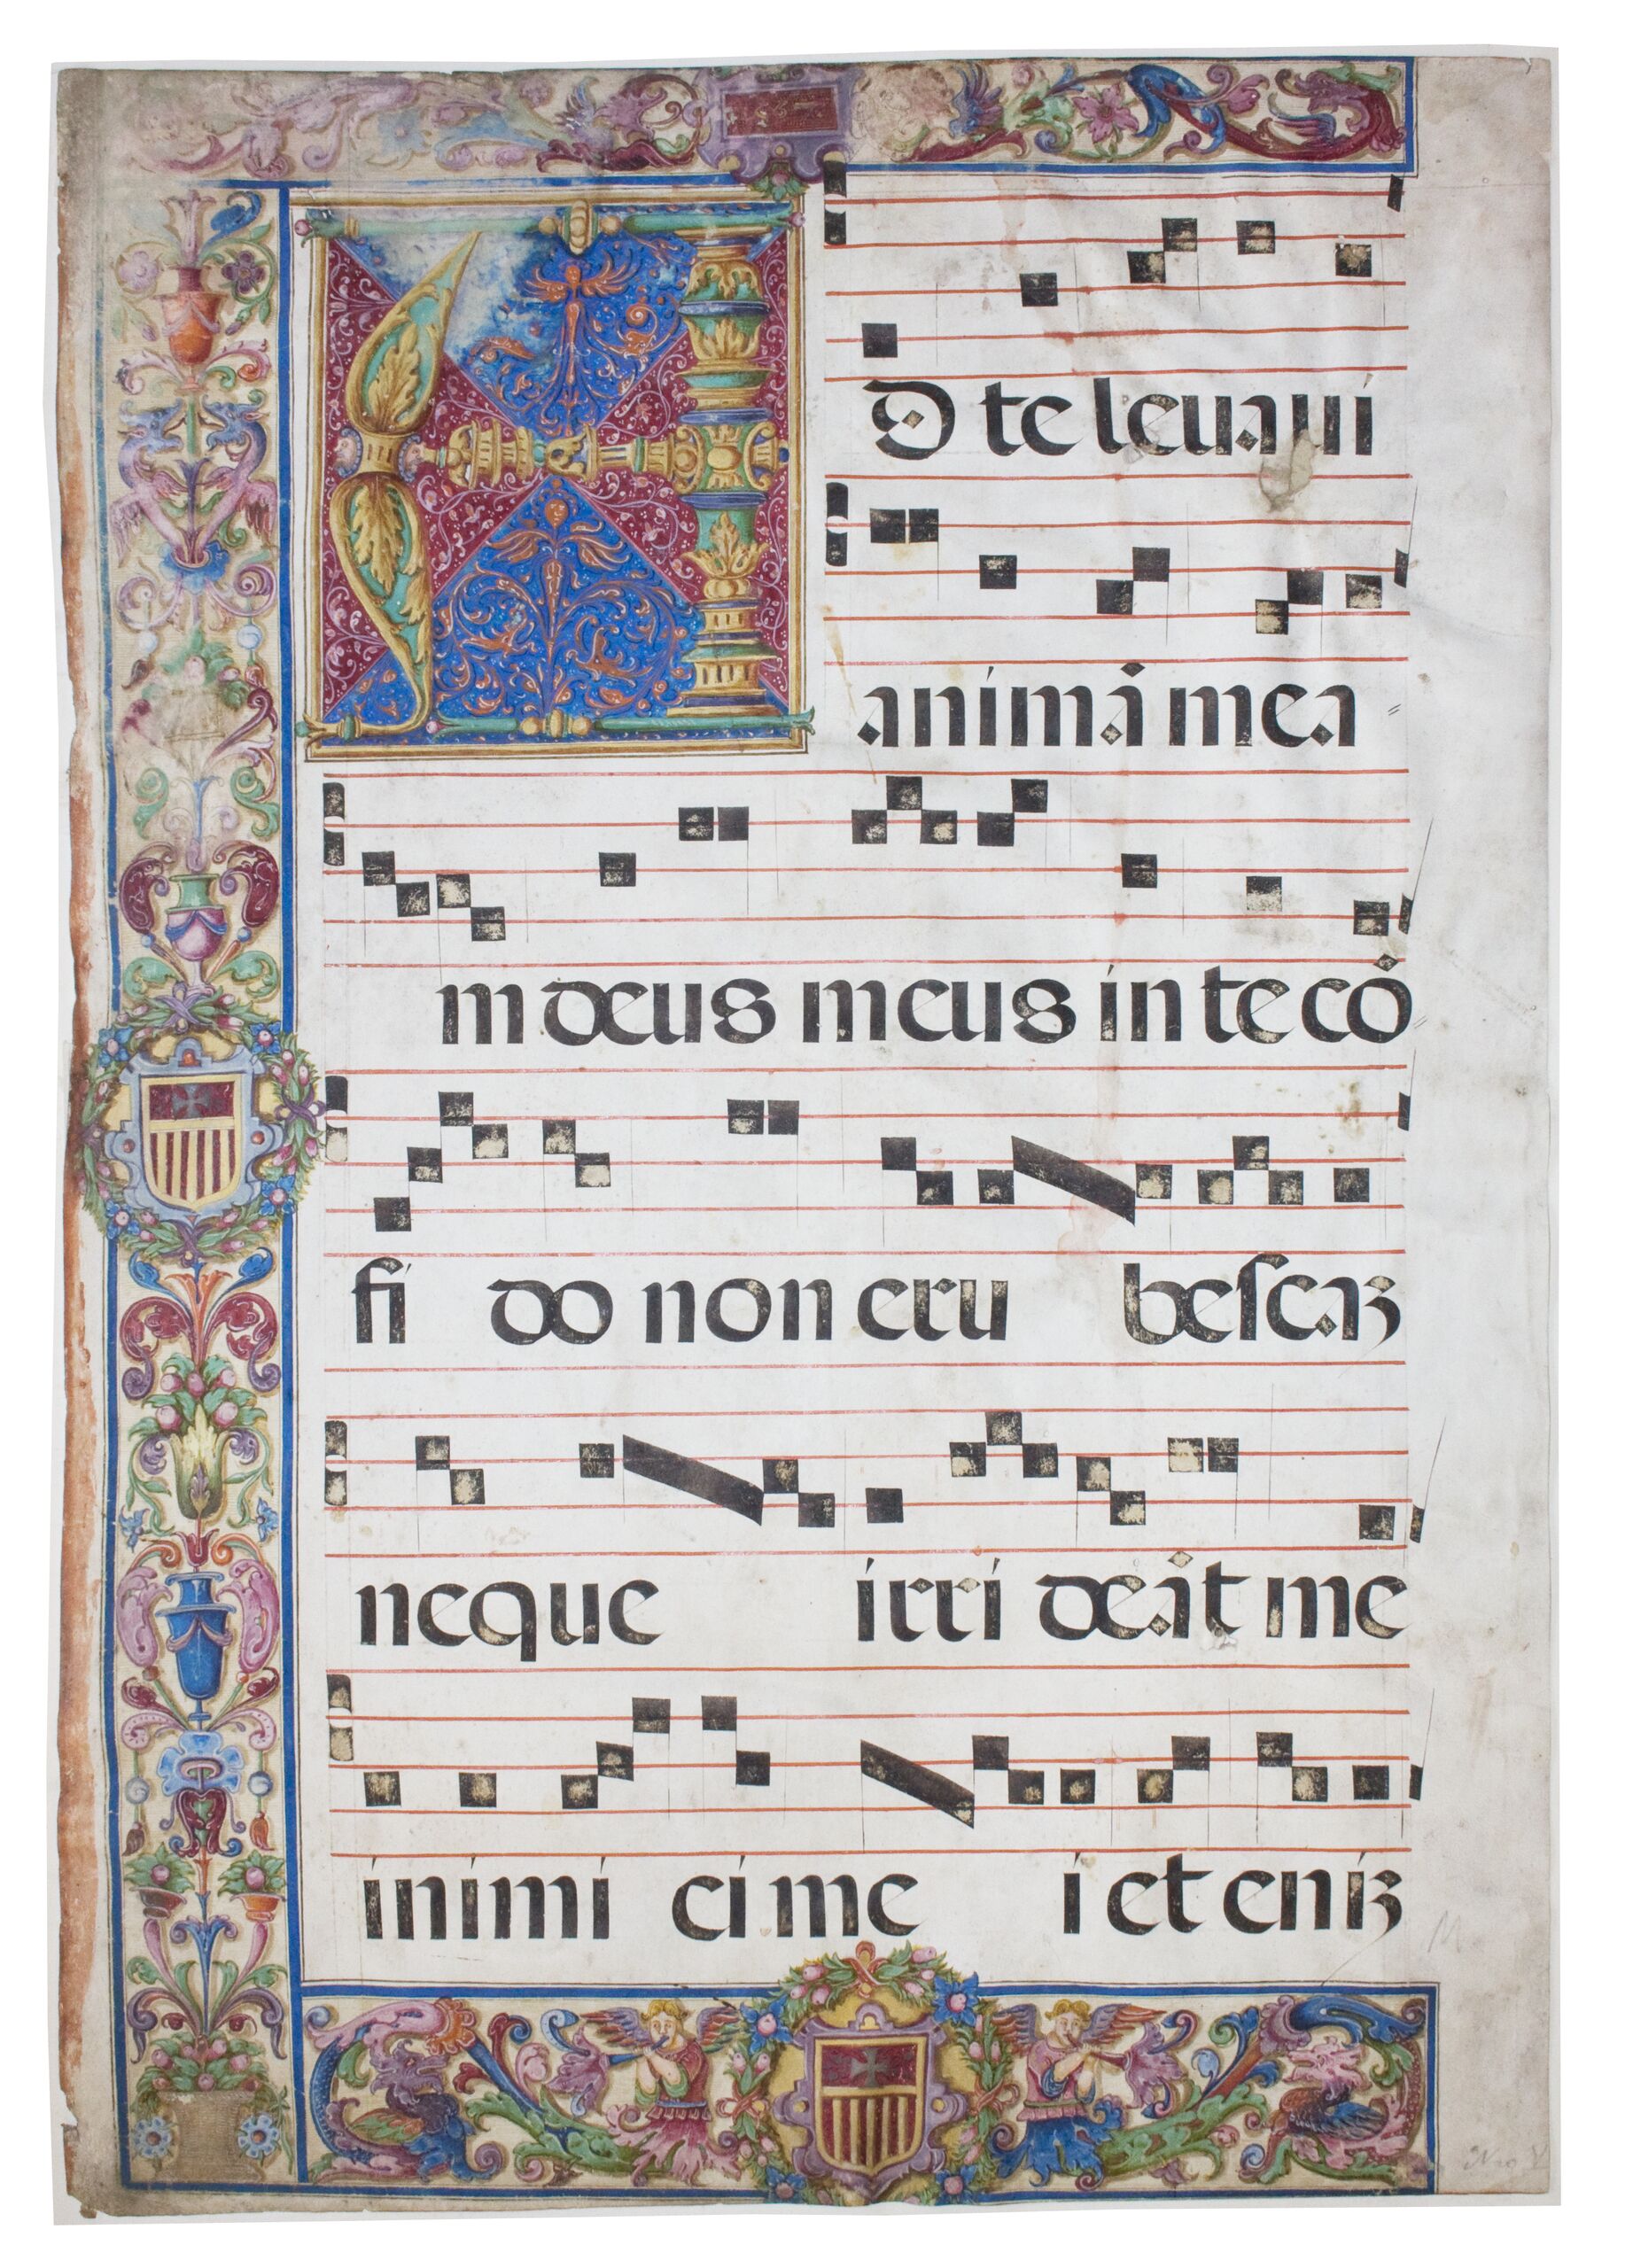 AD te leuaui
animã mea
m deus meus in te cõ
fi do non eru bescaʒ
neque irri deãt me
inimi ci me i et eniʒ